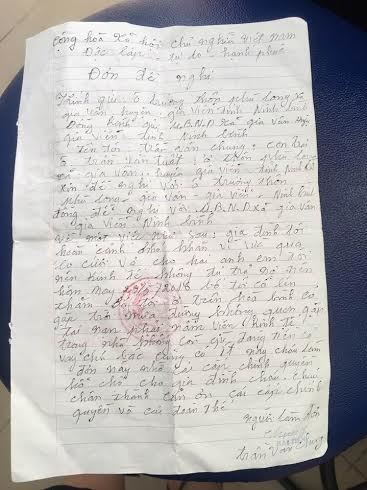 Cộng hòa xã hội chủ nghĩa việt nam
Độc lập - tự do - hạnh phúc
Đơn đề nghị
Kính gửi ô trưởng thôn phú Long xã
gia vân huyện gia viễn tỉnh ninh bình
Đồng kính gửi U.B.N.D xã gia vân
gia viễn tỉnh Ninh bình
tên tôi trần văn chung: con trai
ô trần văn tuất: ở thôn phú long
xã gia vân huyện gia viễn tỉnh
xin đề nghị với ô trưởng thôn
phú long - gia vân - gia viễn - Ninh bình
đồng đề nghị với U.B.N.D xã gia vân
gia viễn Ninh bình
về một việc như sau: gia đình tôi
hoàn cảnh khó khăn vì vừa qua
có cưới vợ cho hai anh em tôi
nên kinh tế không dư
hôm nay 2018 bố tôi có lên
thăm tôi ở trên hòa bình có
gặp trời mưa đường không quen gặp
tai nạn phải nằm viện, kinh tế
trong nhà không còn gì
nay cháu làm
đơn này nhờ cái cấp chính quyền
cho gia đình cháu, cháu
chân thành cảm ơn cái cấp chính
quyền và cái đoàn thể
người làm đơn
chung
trần văn chung